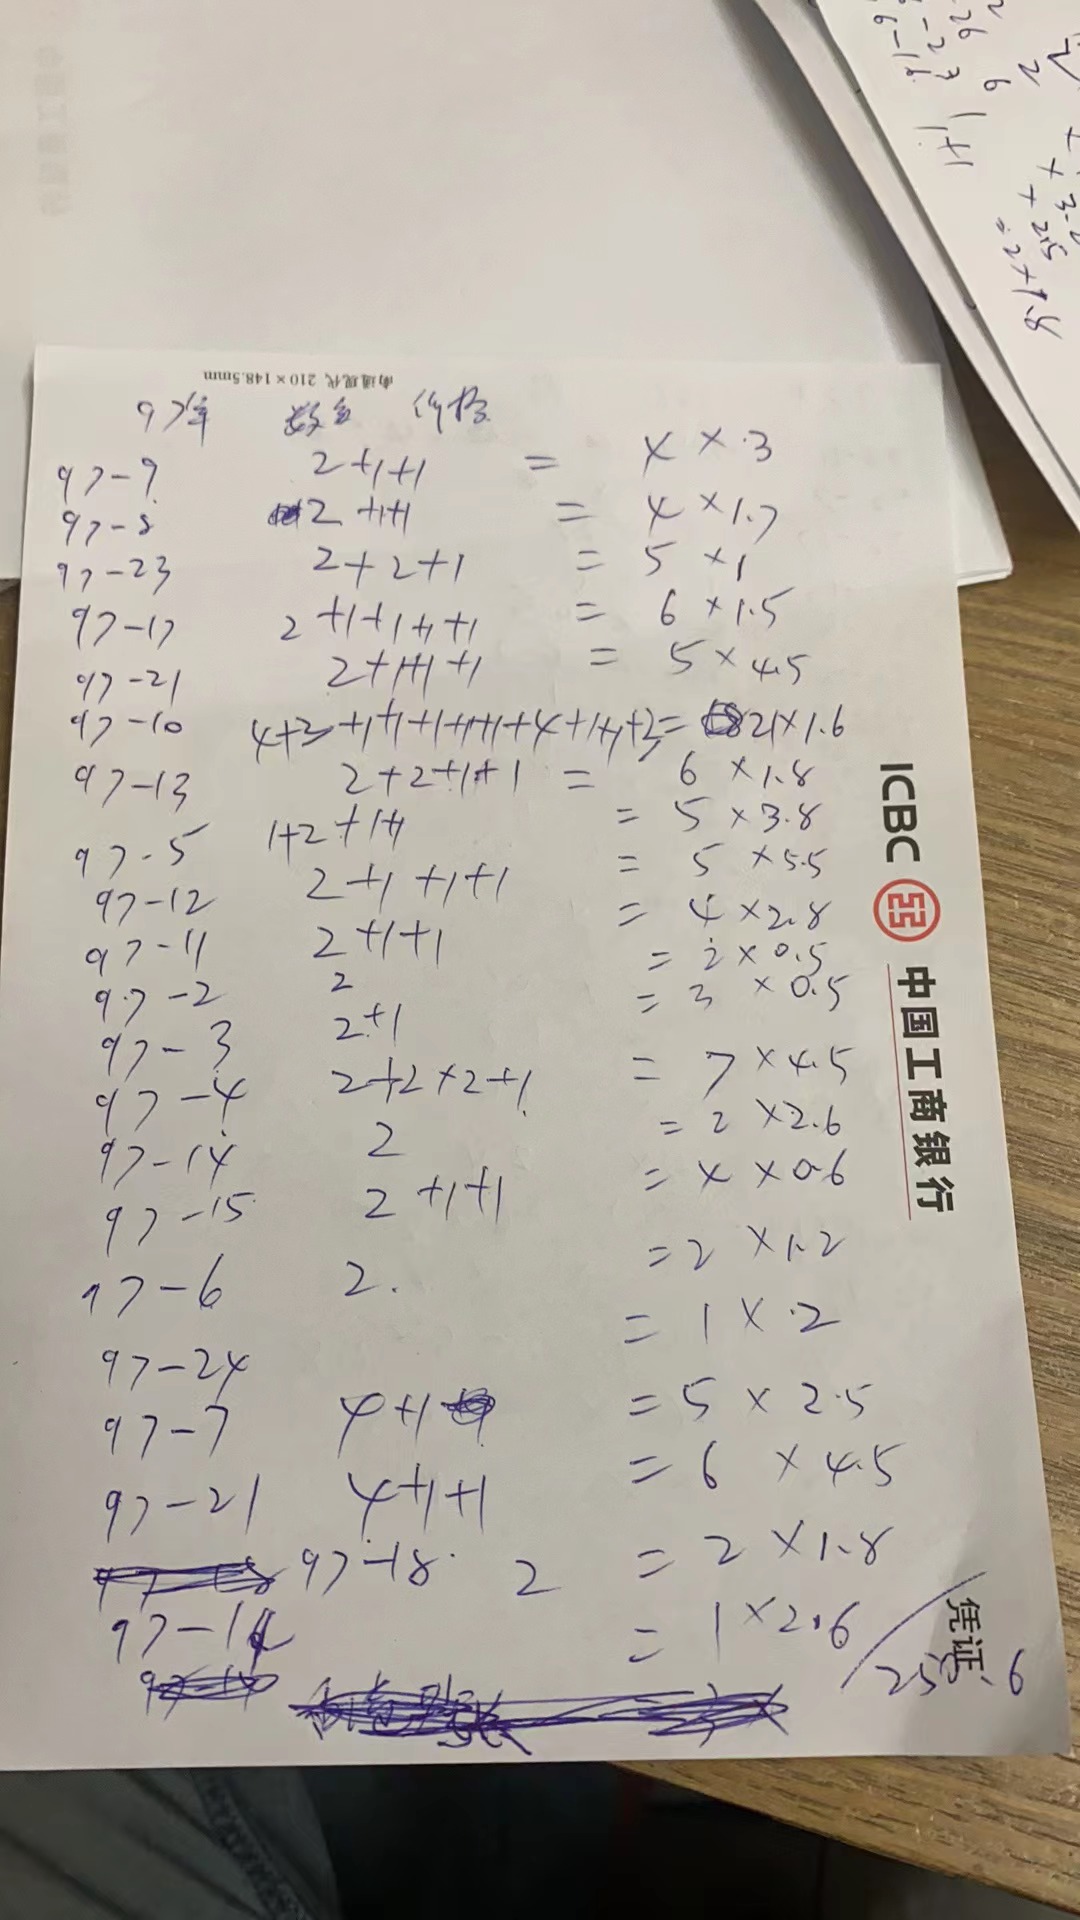 南通现代 210×148.5mm
97年 数量 价格
97-9 2+1+1 = 4 × .3
97-8 2+1+1 = 4 × 1.7
97-23 2+2+1 = 5 × 1
97-17 2+1+1+1+1 = 6 × 1.5
97-21 2+1+1+1 = 5 × 4.5
97-10 = 21×1.6
97-13 2+2+1+1 = 6 × 1.8
97-5 1+2+1+1 = 5 × 3.8
97-12 2+1+1+1 = 5 × 5.5
97-11 2+1+1 = 4 × 2.8
97-2 2 = 2 × 0.5
97-3 2+1 = 3 × 0.5
97-4 2+2+2+1 = 7 × 4.5
97-14 2 = 2 × 2.6
97-15 2+1+1 = 4 × 0.6
97-6 2. = 2 × 1.2
97-24 = 1 × .2
97-7 4+1 = 5 × 2.5
97-21 4+1+1 = 6 × 4.5
97-18 2 = 2 × 1.8
= 1 × 2.6
ICBC 中国工商银行
凭证